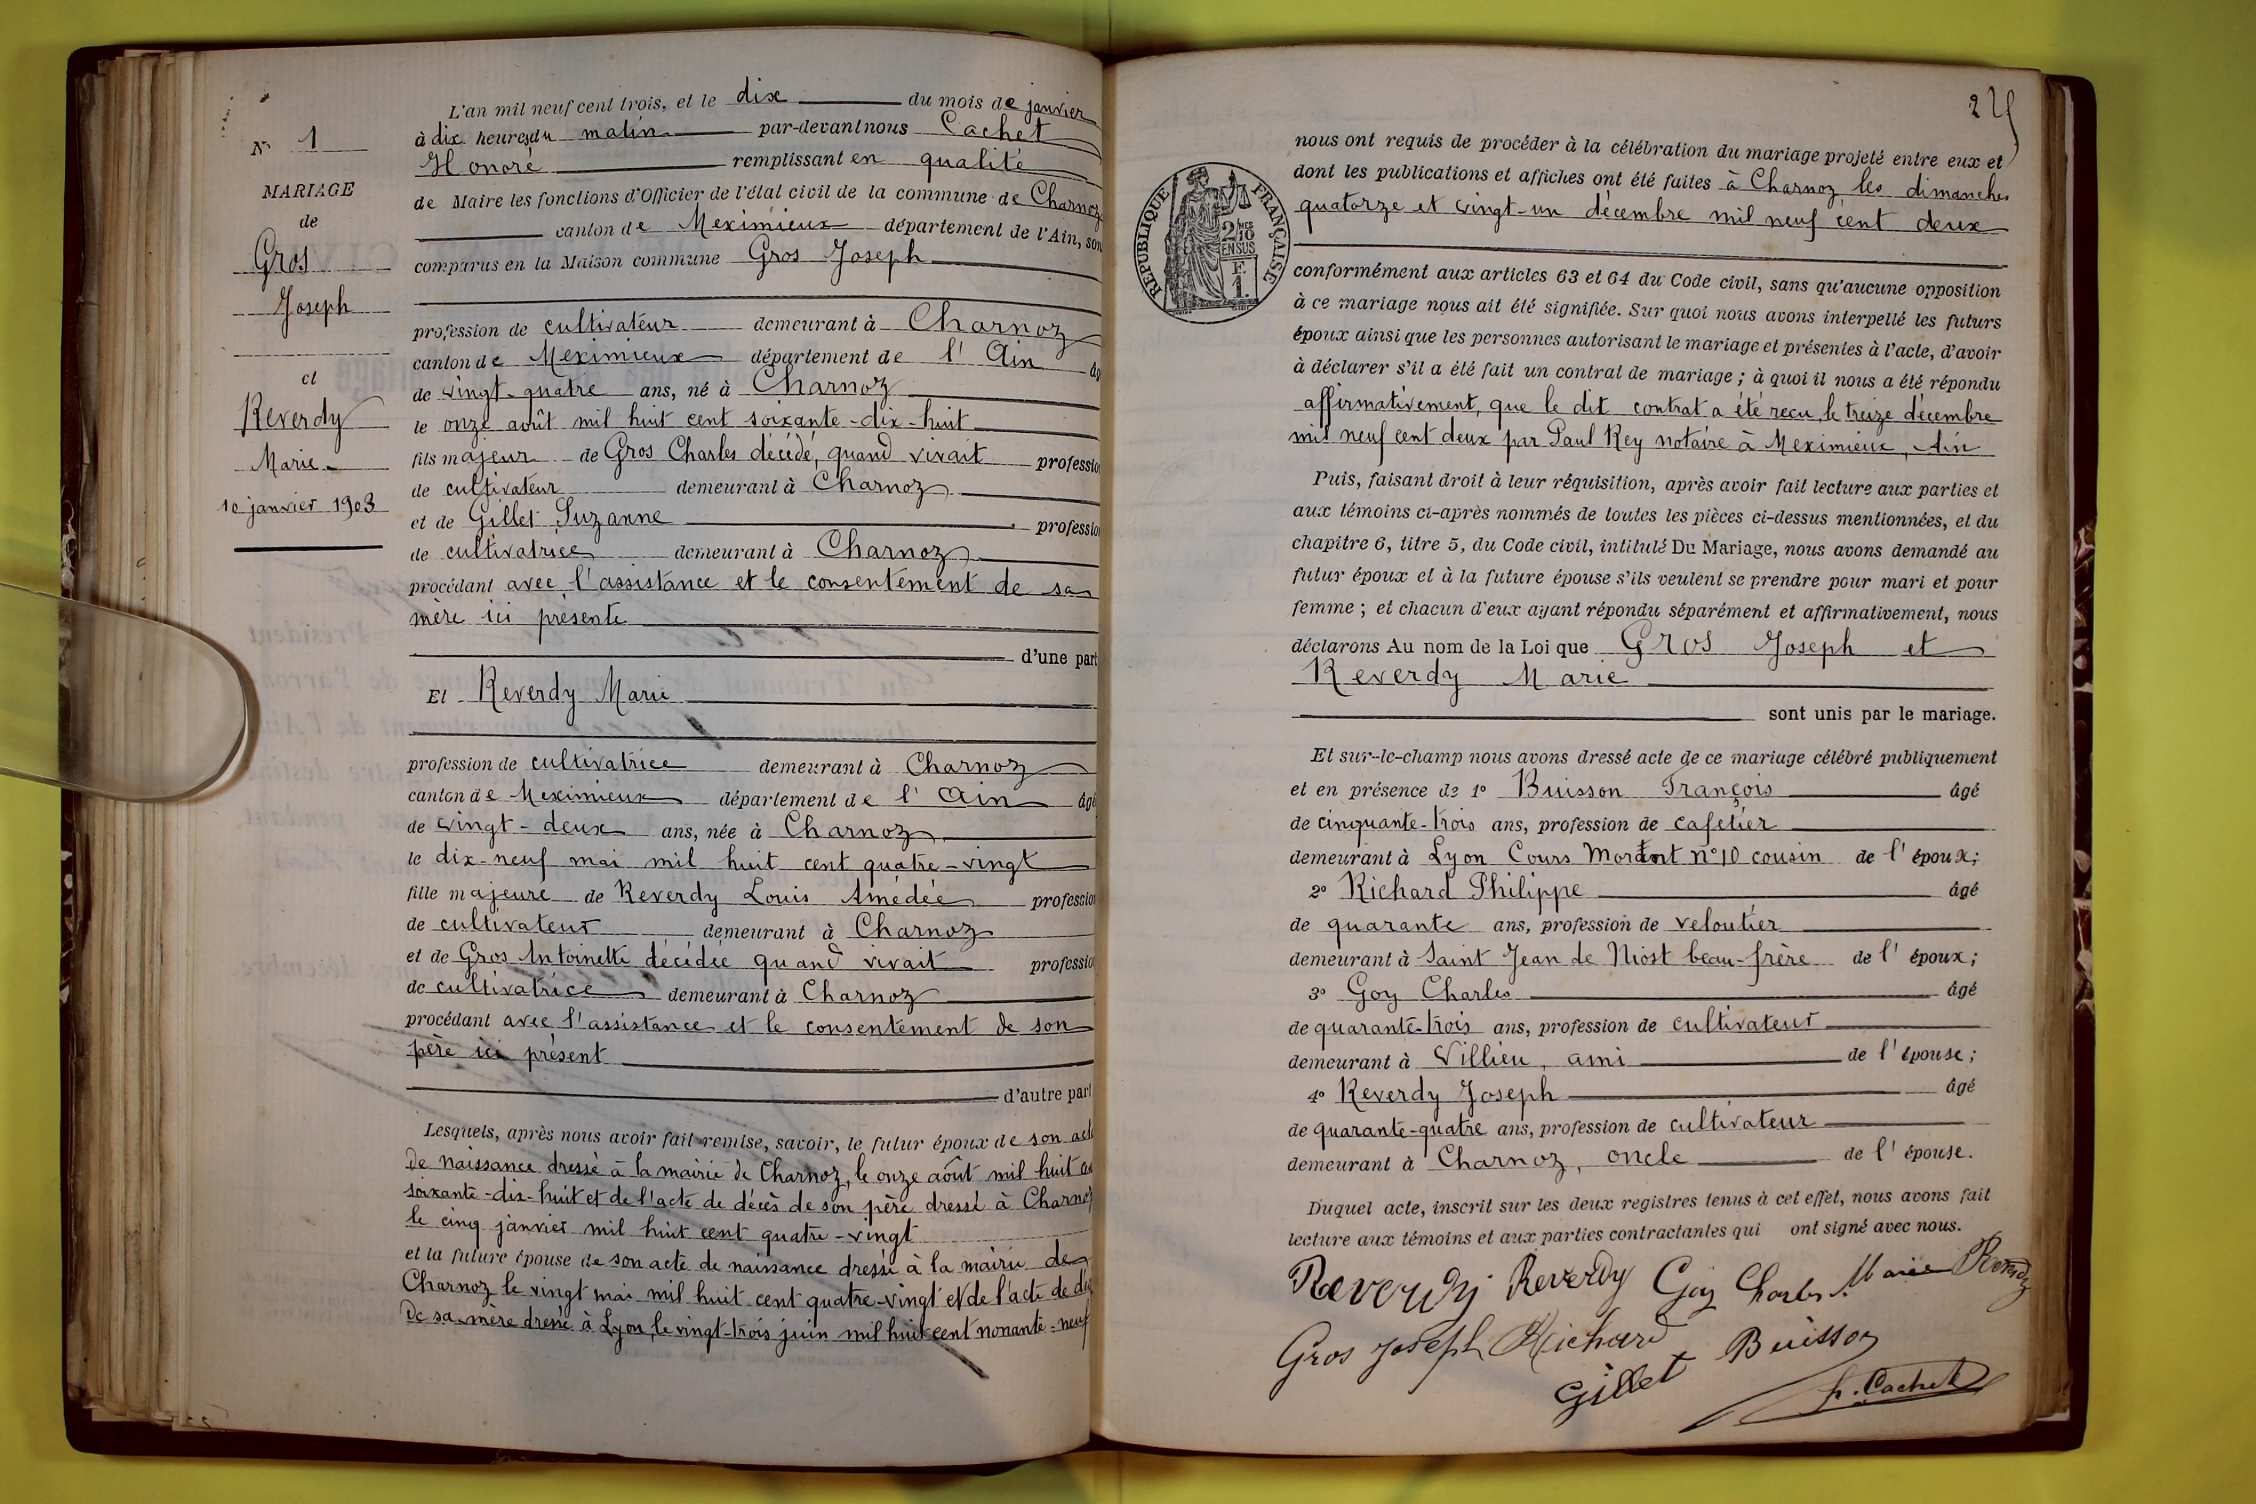 N° 1
MARIAGE
de
Gros
Joseph
et
Reverdy
Marie
10 janvier 1903
L'an mil neuf cent trois, et le dix du mois de janvier
à dix heures du matin par-devant nous Cachet
Honoré remplissant en qualité
de Maire les fonctions d'Officier de l'état civil de la commune de Charnoz
canton de Meximieux département de l'Ain, son
comparus en la Maison commune Gros Joseph
profession de cultivateur demeurant à Charnoz
canton de Meximieux département de l'Ain âg
de vingt-quatre ans, né à Charnoz
le onze août mil huit cent soixante-dix-huit
fils majeur de Gros Charles décédé, quand vivait profession
de cultivateur demeurant à Charnoz
et de Gillet Suzanne profession
de cultivatrice demeurant à Charnoz
procédant avec l'assistance et le consentement de sa
mère ici présente
d'une part
Et Reverdy Marie
profession de cultivatrice demeurant à Charnoz
canton de Meximieux département de l'Ain âgé
de vingt-deux ans, née à Charnoz
le dix-neuf mai mil huit cent quatre-vingt
fille majeure de Reverdy Louis Amédée profession
de cultivateur demeurant à Charnoz
et de Gros Antoinette décédée quand vivait profession
de cultivatrice demeurant à Charnoz
procédant avec l'assistance et le consentement de son
père ici présent
d'autre part
Lesquels, après nous avoir fait remise, savoir, le futur époux de son acte
de naissance dressé à la mairie de Charnoz, le onze août mil huit ce
soixante-dix-huit et de l'acte de décès de son père dressé à Charnoz
le cinq janvier mil huit cent quatre-vingt
et la future épouse de son acte de naissance dressé à la mairie de
Charnoz le vingt mai mil huit cent quatre-vingt et de l'acte de déc
de sa mère dressé à Lyon, le vingt-trois juin mil huit cent nonante-neuf
nous ont requis de procéder à la célébration du mariage projeté entre eux et
dont les publications et affiches ont été faites à Charnoz les dimanches
quatorze et vingt-un décembre mil neuf cent deux
RÉPUBLIQUE FRANÇAISE
2 MES
10
EN SUS
F.
1.
conformément aux articles 63 et 64 du Code civil, sans qu'aucune opposition
à ce mariage nous ait été signifiée. Sur quoi nous avons interpellé les futurs
époux ainsi que les personnes autorisant le mariage et présentes à l'acte, d'avoir
à déclarer s'il a été fait un contrat de mariage ; à quoi il nous a été répondu
affirmativement, que le dit contrat a été reçu, le treize décembre
mil neuf cent deux par Paul Rey notaire à Meximieux, Ain
Puis, faisant droit à leur réquisition, après avoir fait lecture aux parties et
aux témoins ci-après nommés de toutes les pièces ci-dessus mentionnées, et du
chapitre 6, titre 5, du Code civil, intitulé Du Mariage, nous avons demandé au
futur époux et à la future épouse s'ils veulent se prendre pour mari et pour
femme ; et chacun d'eux ayant répondu séparément et affirmativement, nous
déclarons Au nom de la Loi que Gros Joseph et
Reverdy Marie
sont unis par le mariage.
Et sur-le-champ nous avons dressé acte de ce mariage célébré publiquement
et en présence de 1° Buisson François âgé
de cinquante-trois ans, profession de cafetier
demeurant à Lyon Cours n°10 cousin de l'époux;
2° Richard Philippe âgé
de quarante ans, profession de veloutier
demeurant à Saint Jean de Niost beau-frère de l'époux;
3° Goy Charles âgé
de quarante-trois ans, profession de cultivateur
demeurant à Villieu, ami de l'épouse;
4° Reverdy Joseph âgé
de quarante-quatre ans, profession de cultivateur
demeurant à Charnoz, oncle de l'épouse.
Duquel acte, inscrit sur les deux registres tenus à cet effet, nous avons fait
lecture aux témoins et aux parties contractantes qui ont signé avec nous.
Reverdy Reverdy Goy Charles Marie Reverdy
Gros Joseph Richard Buisson
Gillet h. Cachet